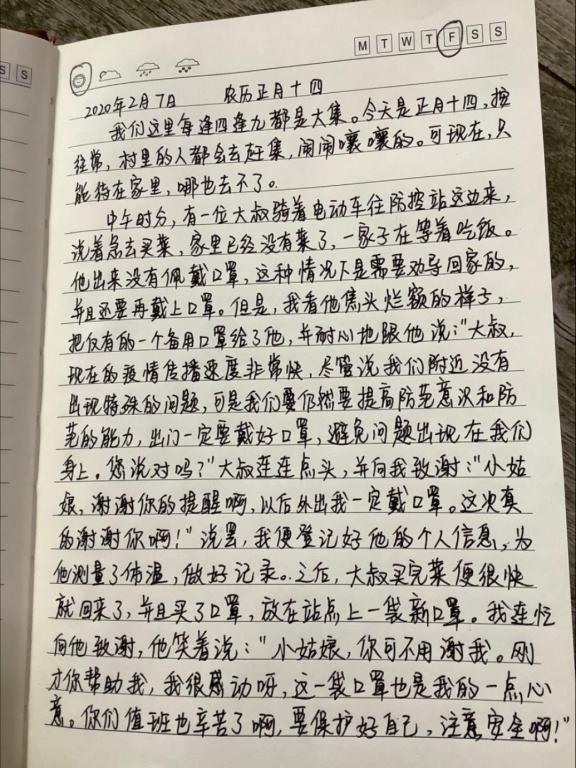 M T W T F S S
S S
2020年2月7日 农历正月十四
我们这里每逢四逢九都是大集。今天是正月十四,按
往常,村里的人都会去赶集,闹闹嚷嚷的。可现在,只
能待在家里,哪也去不了。
中午时分,有一位大叔骑着电动车往防控站这边来,
说着急去买菜,家里已经没有菜了,一家子在等着吃饭。
他出来没有佩戴口罩,这种情况下是需要劝导回家的,
并且还要再戴上口罩。但是,我看他焦头烂额的样子,
把仅有的一个备用口罩给了他,并耐心地跟他说:"大叔,
现在的疫情传播速度非常快,尽管说我们附近没有
出现特殊的问题,可是我们要仍然要提高防范意识和防
范的能力,出门一定要戴好口罩,避免问题出现在我们
身上。您说对吗?"大叔连连点头,并向我致谢:"小姑
娘,谢谢你的提醒啊,以后外出我一定戴口罩。这次真
的谢谢你啊!"说罢,我便登记好他的个人信息,为
他测量了体温,做好记录。之后,大叔买完菜便很快
就回来了,并且买了口罩,放在站点上一袋新口罩。我连忙
向他致谢,他笑着说:"小姑娘,你可不用谢我。刚
才你帮助我,我很感动呀,这一袋口罩也是我的一点心
意。你们值班也辛苦了啊,要保护好自己,注意安全啊!"